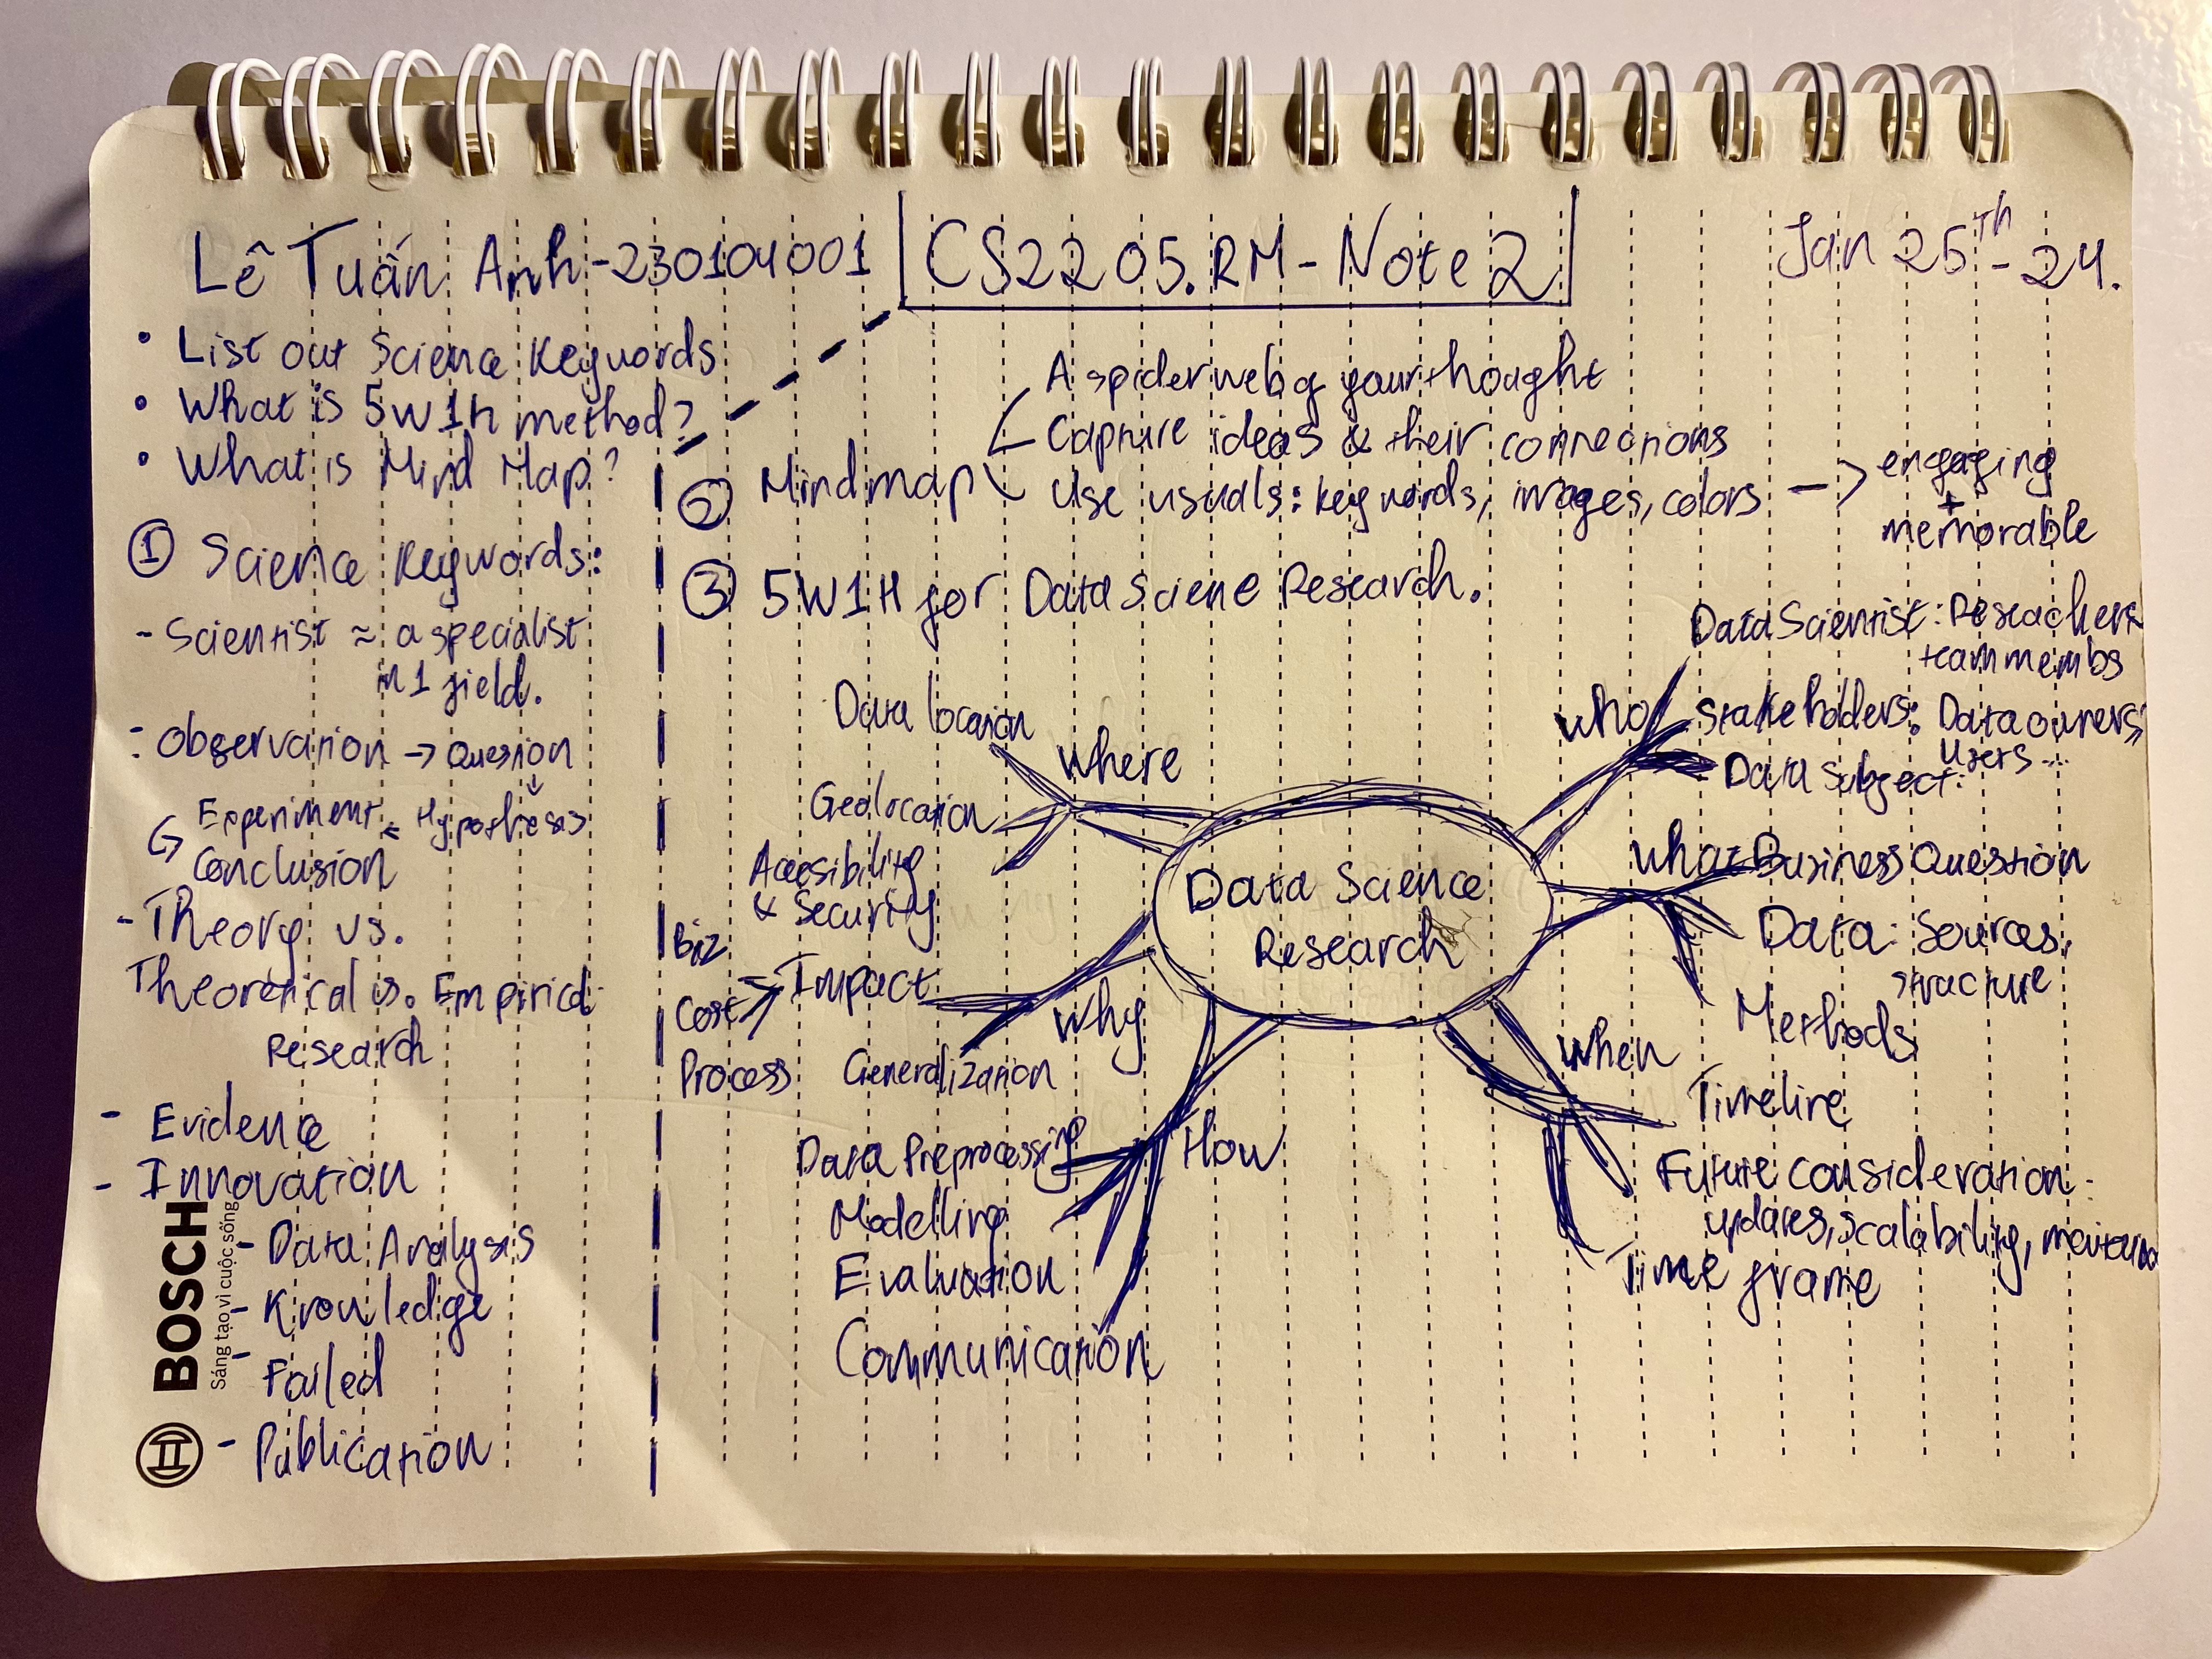 Lê Tuấn Anh - 230104001
CS2205.RM - Note 2
Jan 25Th - 24.
• List out Science Keywords
• What is 5W1H method?
• What is Mind Map?
① Science Keywords:
- Scientist ≈ a specialist
in 1 field.
- Observation → Question
↓
Experiment ← Hypothesis
↪ Conclusion
- Theory vs.
Theoretical vs. Empirical
Research
- Evidence
- Innovation
- Data Analysis
- Knowledge
- Failed
- Publication
BOSCH
Sáng tạo vì cuộc sống
② Mindmap
A spider web of your thought
Capture ideas & their connections
Use usuals: keywords, images, colors → engaging
+
memorable
③ 5W1H for Data Sciene Research.
Data Science
Research
Where
Data location
Geolocation
Accesibility
& Security
Why
Impact
Biz
Cost
Process
Generalization
How
Data Preprocessing
Modelling
Evaluation
Communication
Who
Data Scientist: Reseachers
team membs
Stakeholders: Data owners,
Users...
Data Subject:
What
Business Question
Data: Sources,
structure
Methods
When
Timeline
Future consideration:
updates, scalability,
Time frame